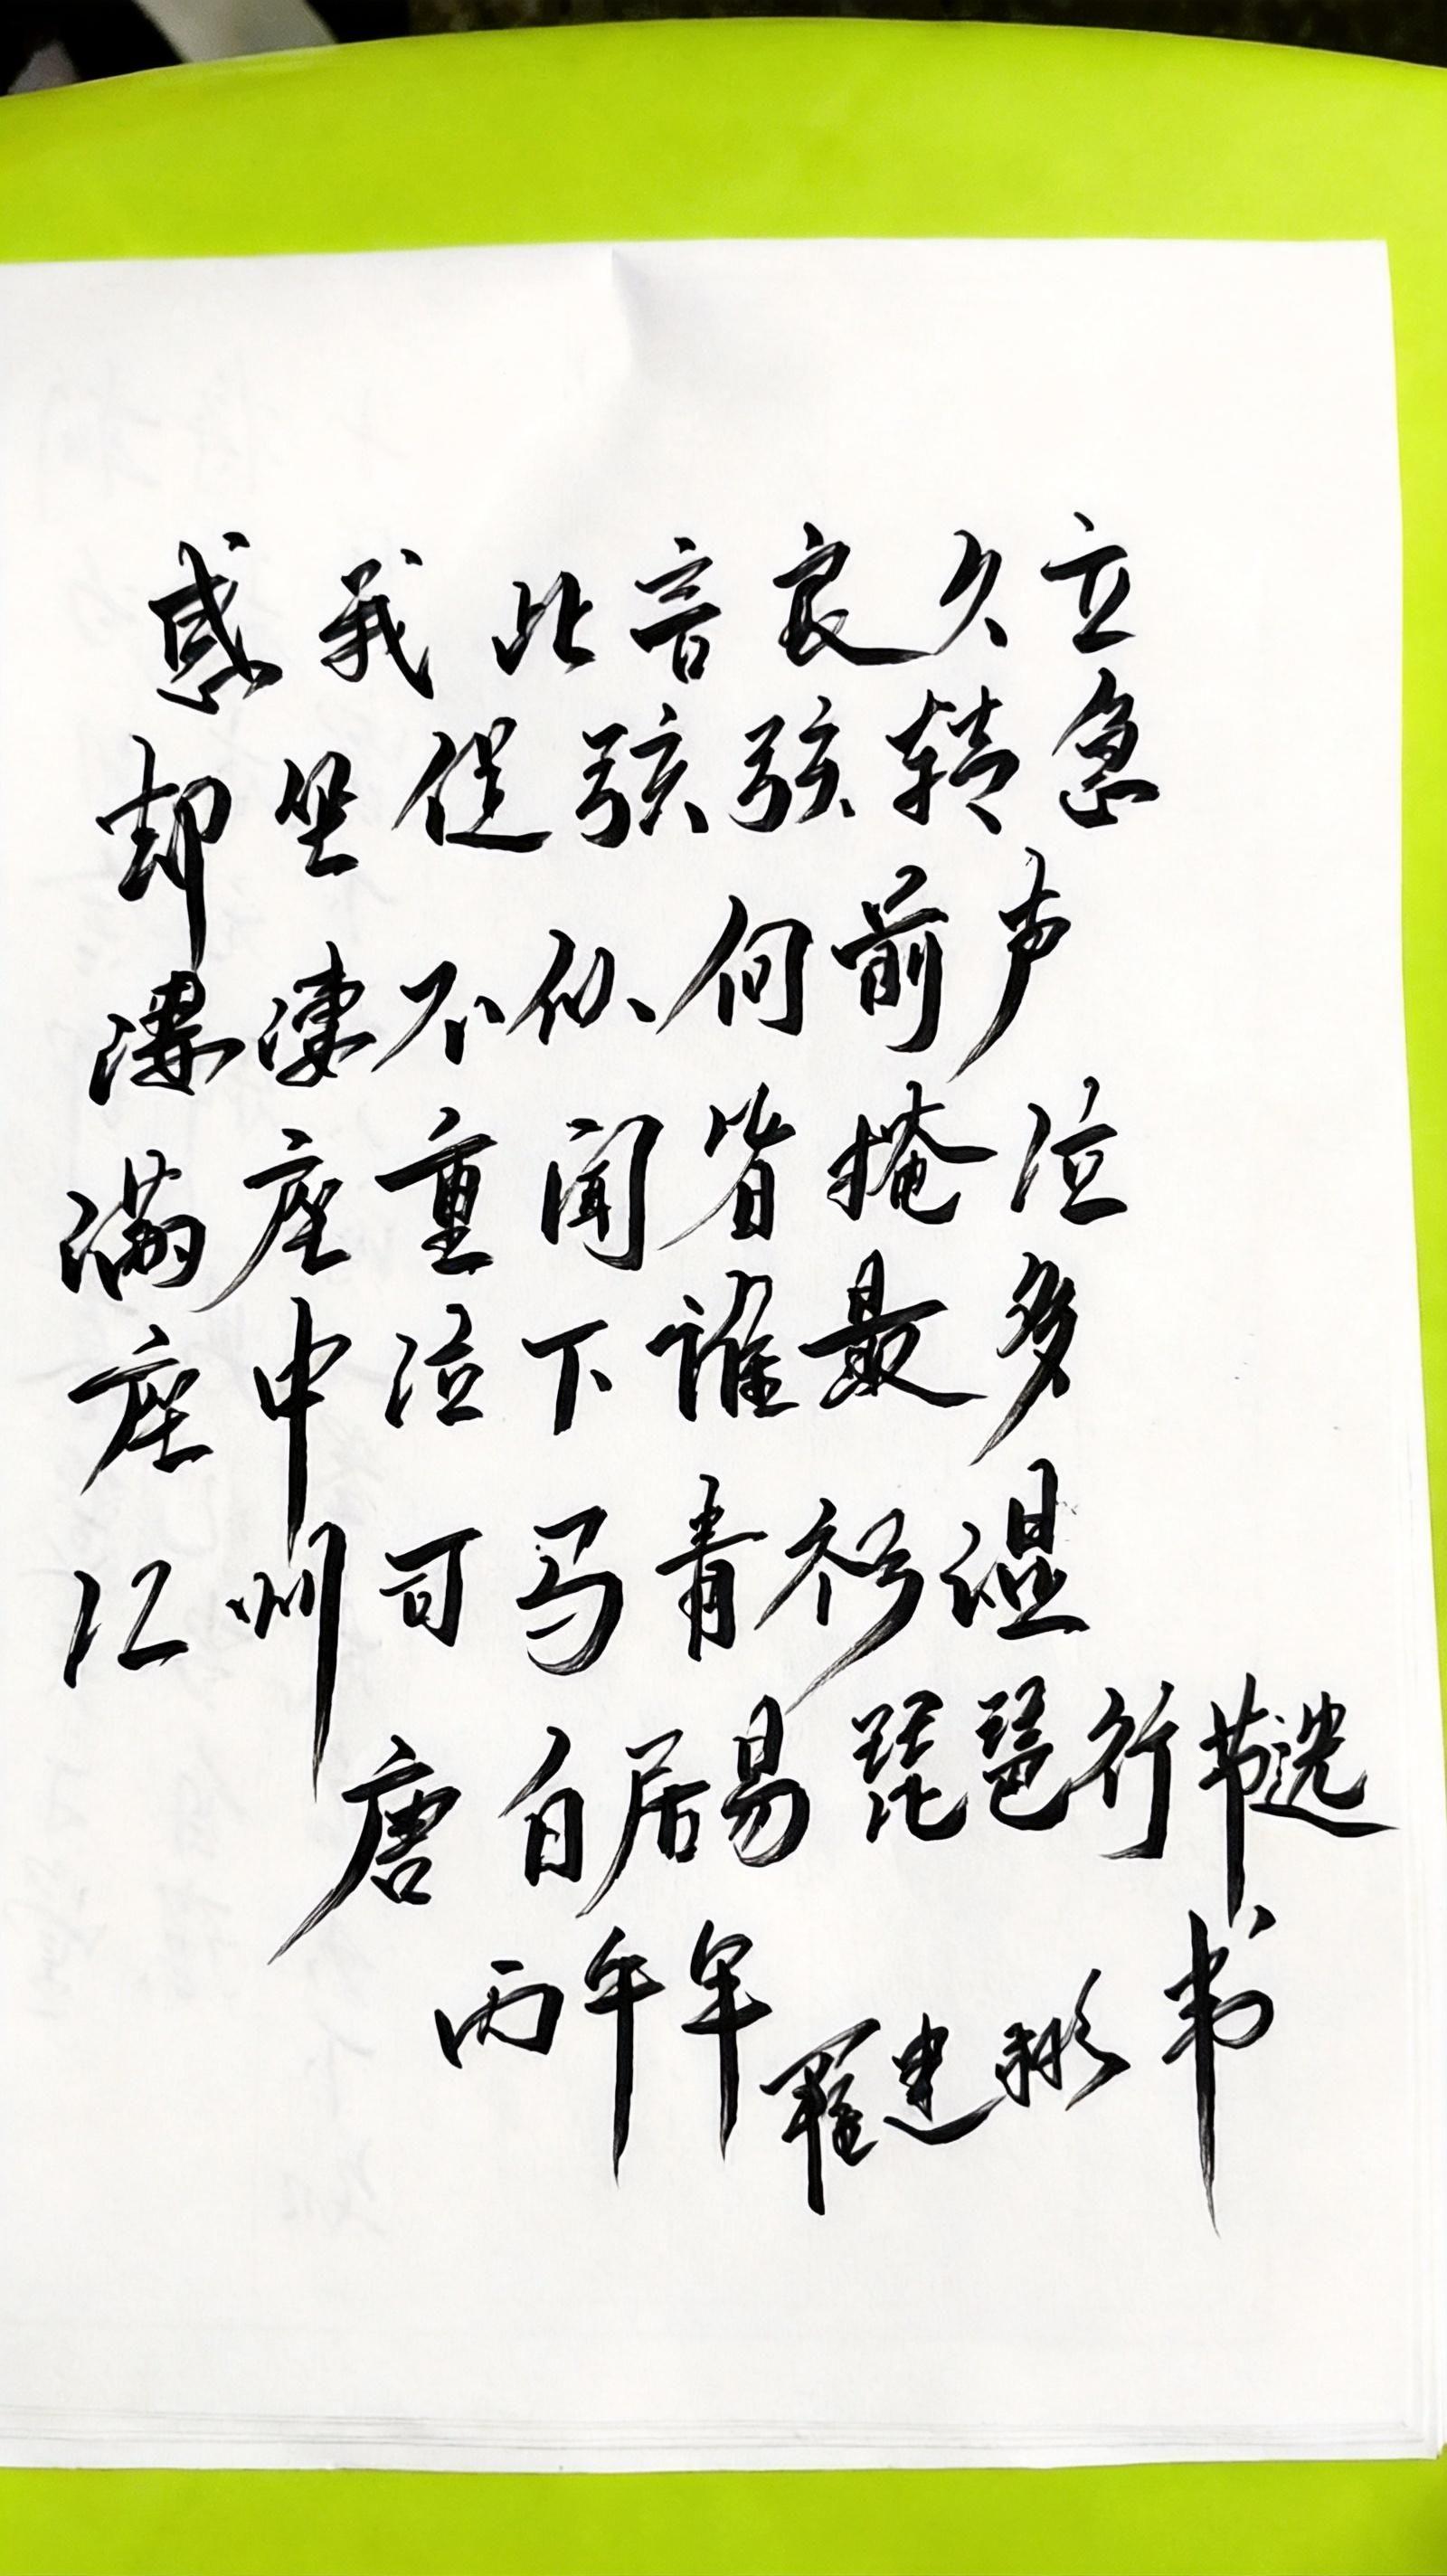 感我此音良久立
却坐促弦弦转急
凄凄不似向前声
满座重闻皆掩泣
座中泣下谁最多
江州司马青衫湿
唐白居易琵琶行节选
丙午年罗建彬书